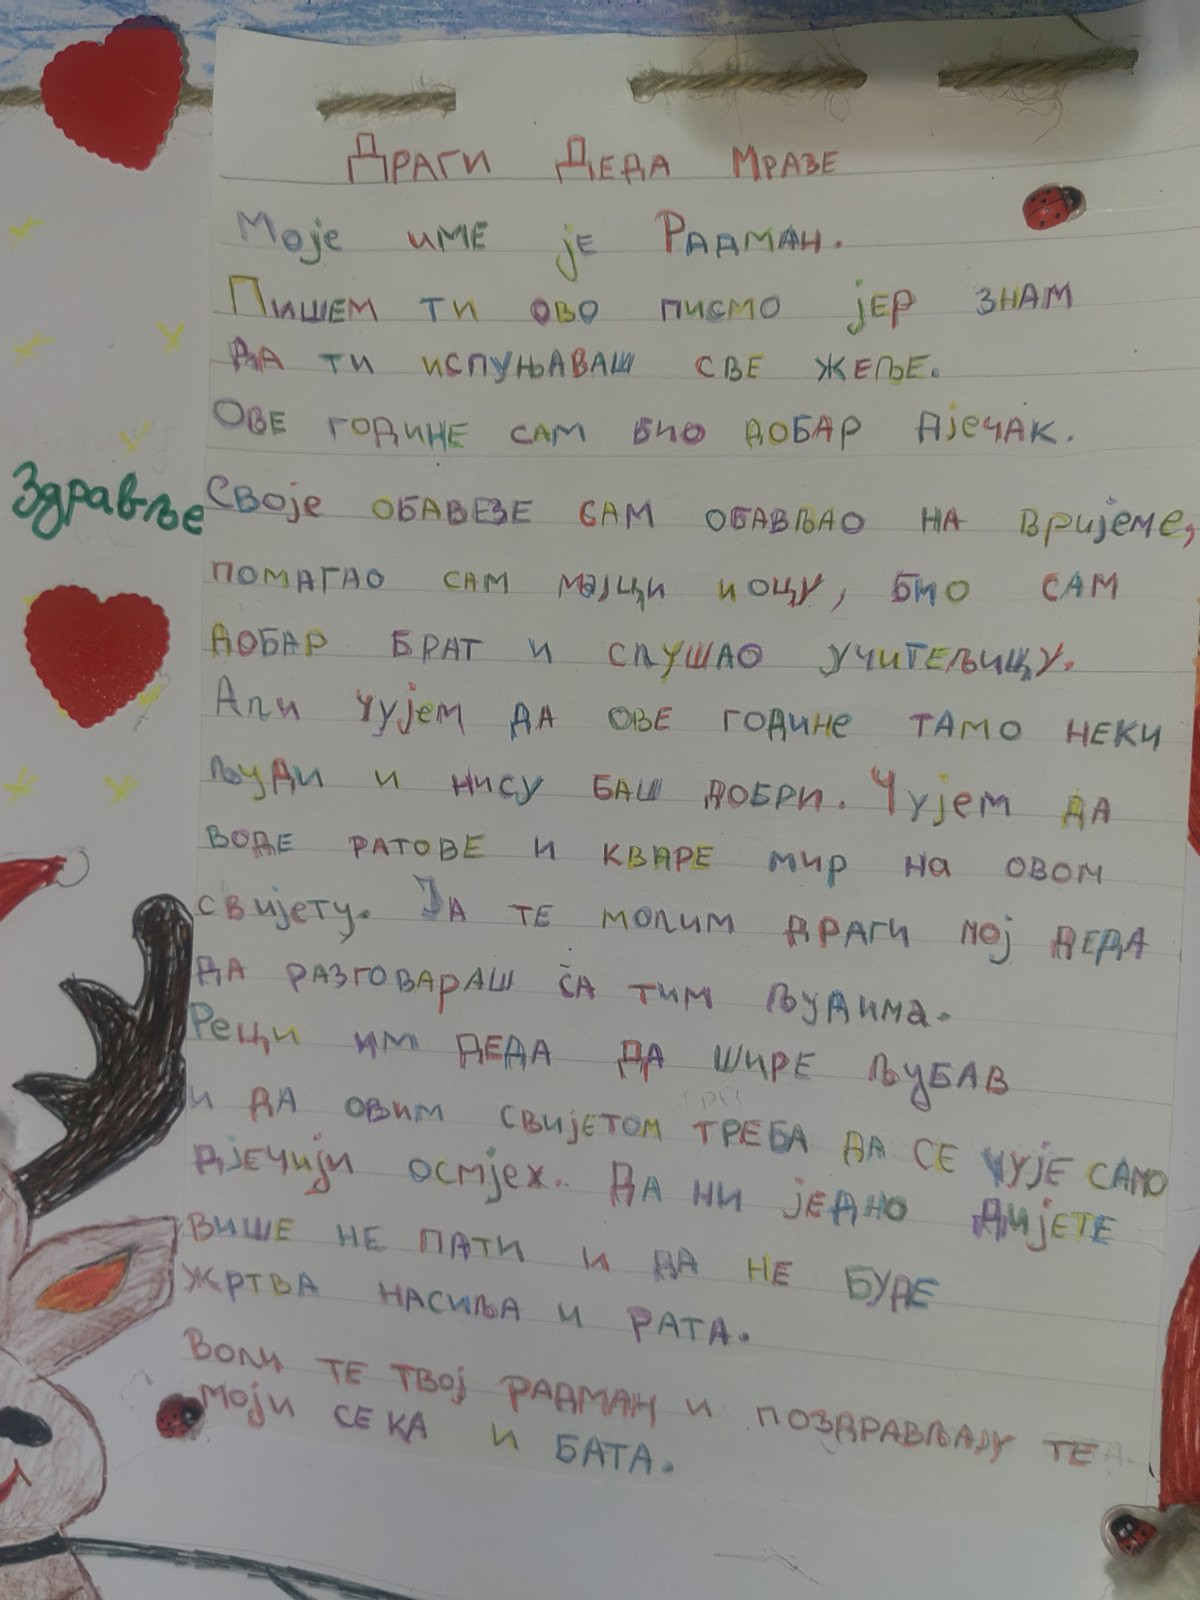 Драги Деда Мразе
Моје име је Радман.
Пишем ти ово писмо јер знам
да ти испуњаваш све жеље.
Ове године сам био добар дјечак.
Здравље
Своје обавезе сам обављао на вријеме,
помагао сам мајци и оцу, био сам
добар брат и слушао учитељицу.
Али чујем да ове године тамо неки
људи и нису баш добри. Чујем да
воде ратове и кваре мир на овом
свијету. Ја те молим драги мој деда
да разговараш са тим људима.
Реци им деда да шире љубав
и да овим свијетом треба да се чује само
дјечији осмјех.. Да ни једно дијете
више не пати и да не буде
жртва насиља и рата.
Воли те твој Радман и поздрављају те
моји сека и бата.